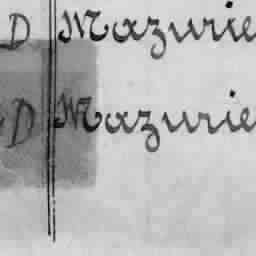 D Mazurie
D Mazurie